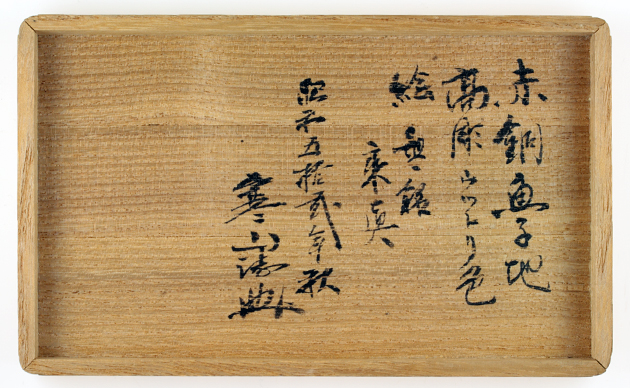 赤銅魚子地
高彫うっとり色
絵 無銘
乗真
昭和五拾弐年秋
寒山誌